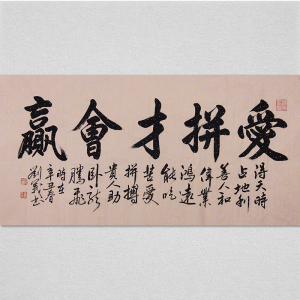 愛拼才會贏
得天時
占地利
善人和
偉業
鴻遠
能吃
苦愛
拼搏
貴人助
臥龍
騰飛
時在
辛丑春